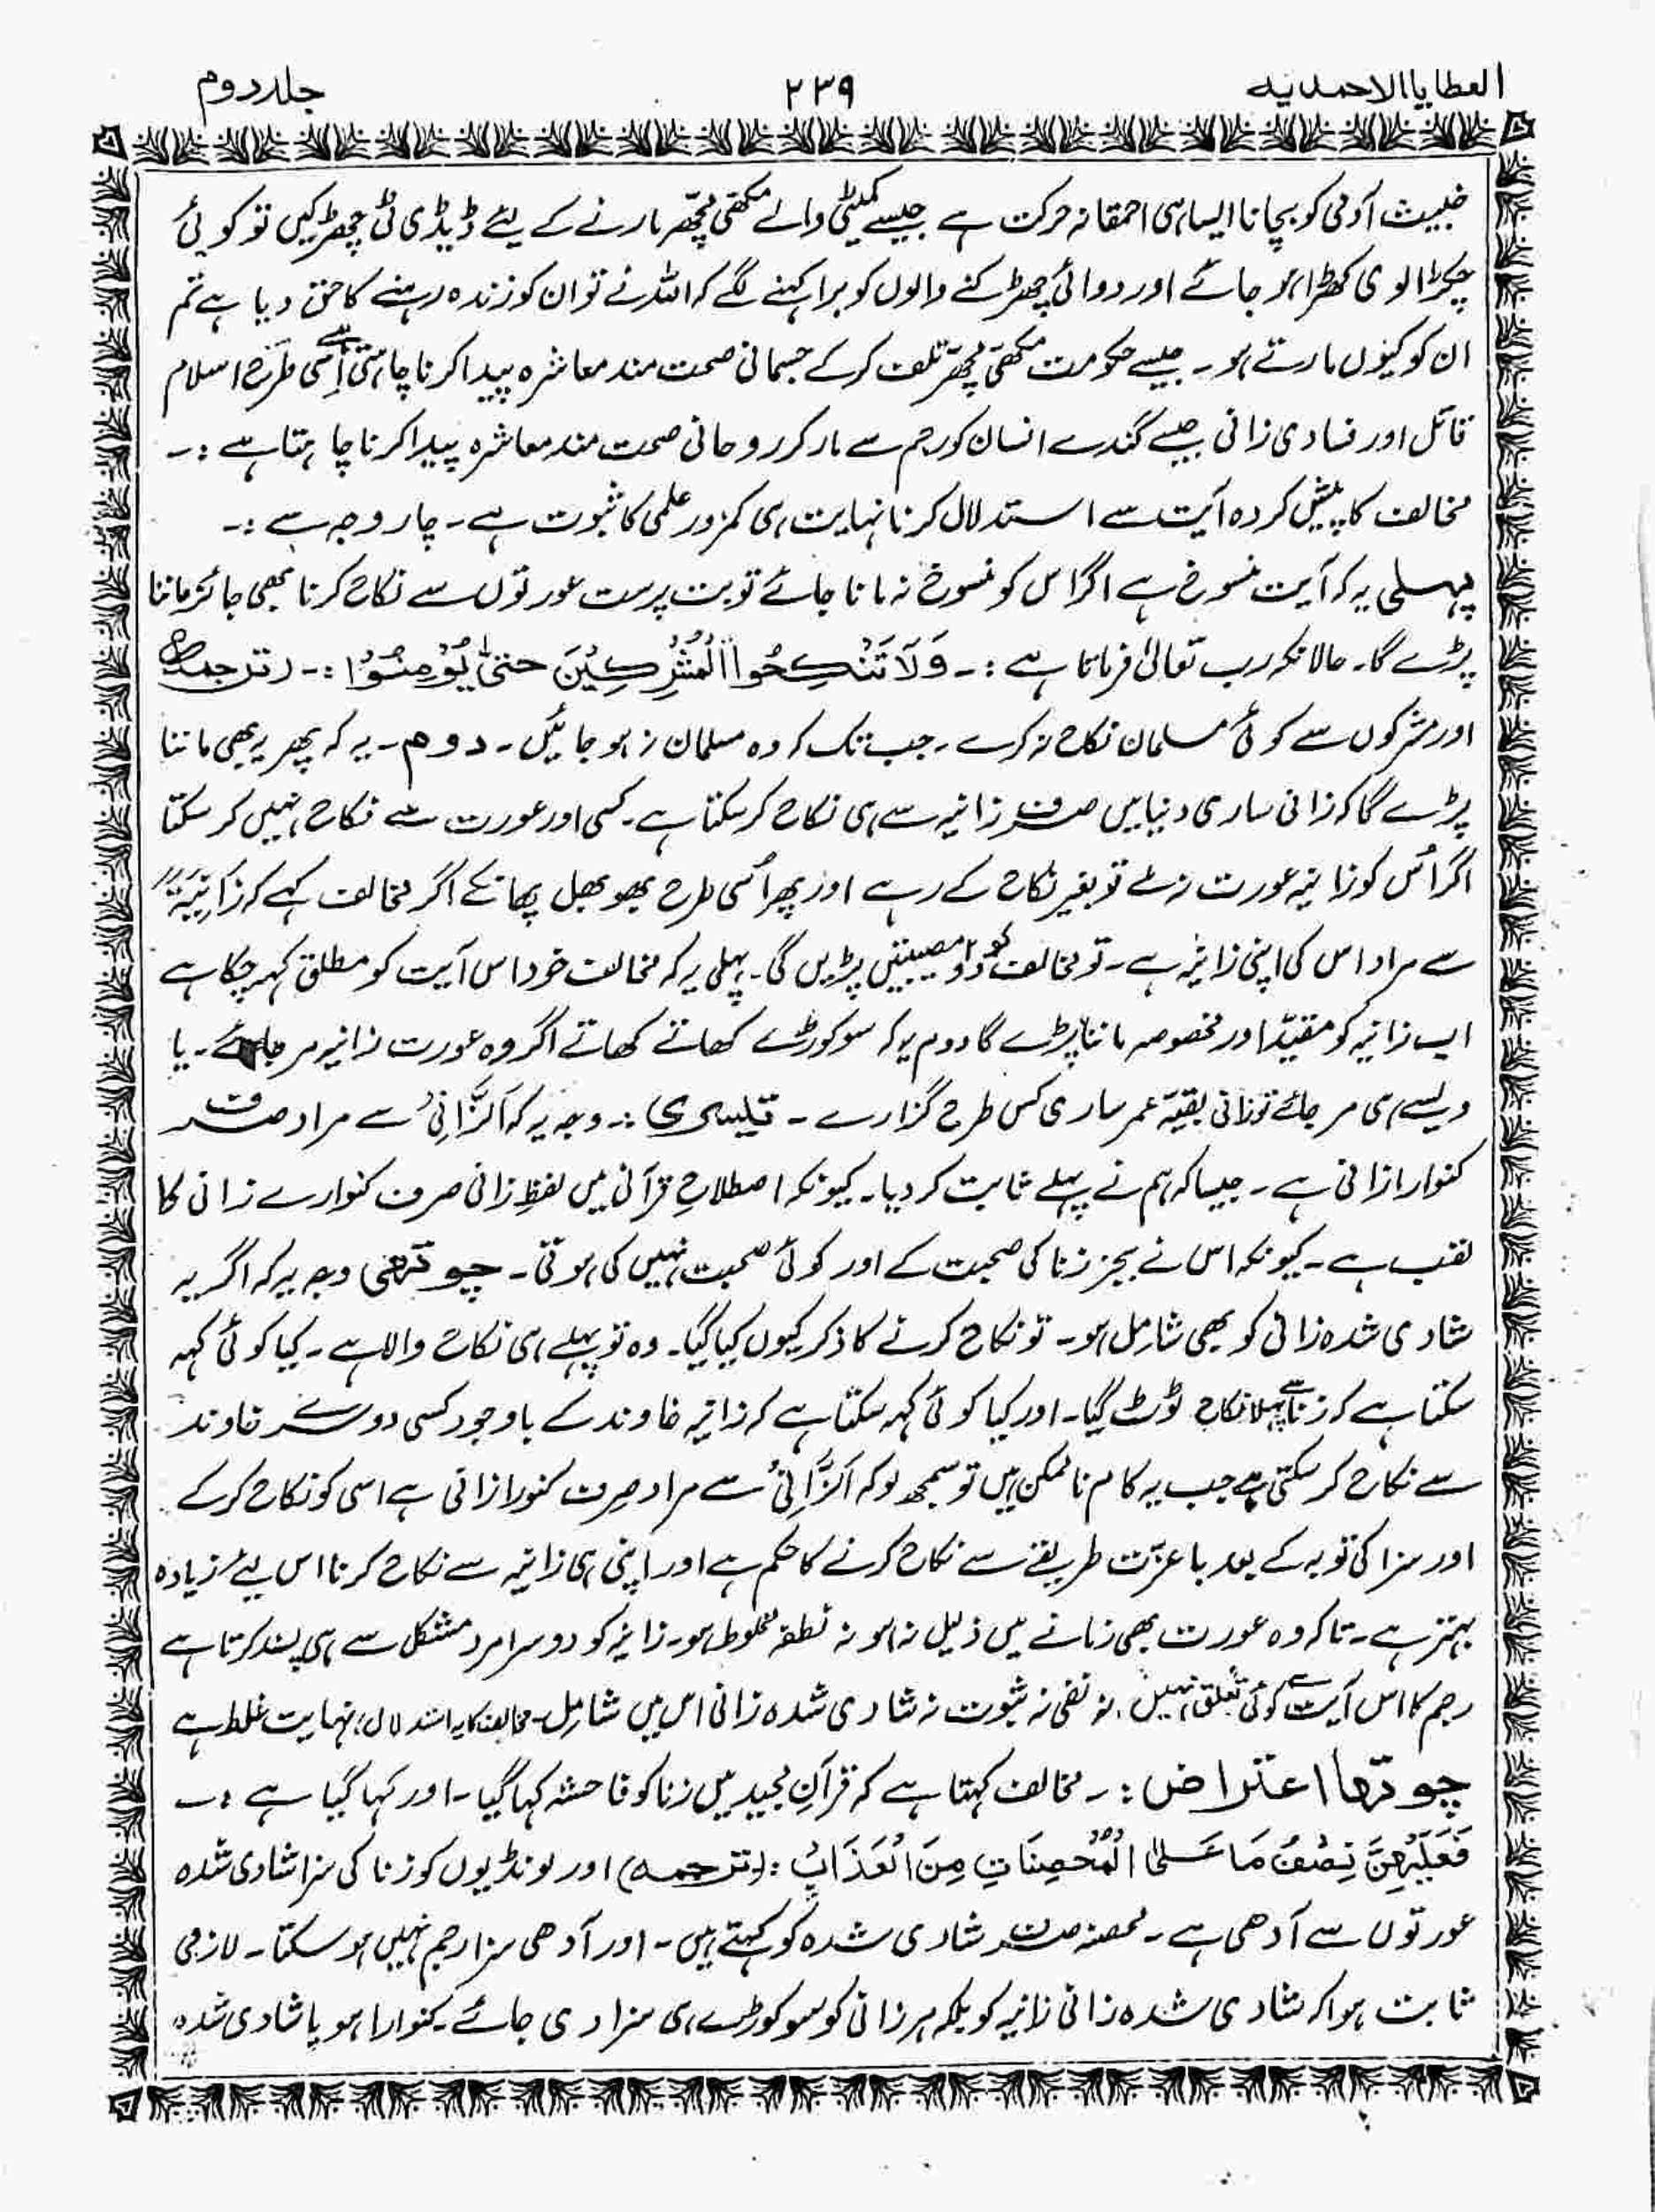 العطایا الاحمدیہ
۲۳۹
جلد دوم
خبیث آدمی کو بچانا ایسا ہی احمقانہ حرکت ہے جیسے کمیٹی والے مکھی مچھر مارنے کے لئے ڈیڈی ٹی چھڑکیں تو کوئی
چکڑالوی کھڑا ہو جائے اور دوائی چھڑکنے والوں کو برا کہنے لگے کہ اللہ نے تو ان کو زندہ رہنے کا حق دیا ہے تم
ان کو کیوں مارتے ہو۔ جیسے حکومت مکھی مچھر تلف کرکے جسمانی صحت مند معاشرہ پیدا کرنا چاہتی ہے اسی طرح اسلام
قاتل اور فسادی زانی جیسے گندے انسان کو رجم سے مار کر روحانی صحت مند معاشرہ پیدا کرنا چاہتا ہے :۔
مخالف کا پیش کردہ آیت سے استدلال کرنا نہایت ہی کمزور علمی کا ثبوت ہے۔ چار وجہ سے :۔
پہلی یہ کہ آیت منسوخ ہے اگر اس کو منسوخ نہ مانا جائے تو بت پرست عورتوں سے نکاح کرنا بھی جائز ماننا
پڑے گا۔ حالانکہ رب تعالیٰ فرماتا ہے :۔ وَلَا تَنْكِحُوا الْمُشْرِكِیْنَ حتیّٰ یُوْمِنُوْا :۔ (ترجمہ)
اور مشرکوں سے کوئی مسلمان نکاح نہ کرے۔ جب تک کہ وہ مسلمان نہ ہو جائیں۔ دوم۔ یہ کہ پھر یہ بھی ماننا
پڑے گا کہ زانی ساری دنیا میں صرف زانیہ سے ہی نکاح کر سکتا ہے۔ کسی اور عورت سے نکاح نہیں کر سکتا
اگر اُس کو زانیہ عورت نہ ملے تو بغیر نکاح کے رہے اور پھر اُسی طرح بھوبھل پھانکے اگر مخالف کہے کہ زَانِیَۃً
سے مراد اس کی اپنی زانیہ ہے۔ تو مخالف کو دو مصیبتیں پڑیں گی۔ پہلی یہ کہ مخالف خود اس آیت کو مطلق کہہ چکا ہے
اب زانیہ کو مقیّد اور مخصوصہ ماننا پڑے گا دوم یہ کہ سو کوڑے کھاتے کھاتے اگر وہ عورت زانیہ مر جائے۔ یا
ویسے ہی مر جائے تو زانی بقیّہ عمر ساری کس طرح گزارے۔ تیسری :۔ وجہ یہ کہ اَلزَّانِیْ سے مراد صرف
کنوارا زانی ہے۔ جیسا کہ ہم نے پہلے ثابت کر دیا۔ کیونکہ اصطلاحِ قرآنی میں لفظِ زانی صرف کنوارے زانی کا
لقب ہے۔ کیونکہ اس نے بجز زنا کی صحبت کے اور کوئی صحبت نہیں کی ہوتی۔ چوتھی وجہ یہ کہ اگر یہ
شادی شدہ زانی کو بھی شامل ہو۔ تو نکاح کرنے کا ذکر کیوں کیا گیا۔ وہ تو پہلے ہی نکاح والا ہے۔ کیا کوئی کہہ
سکتا ہے کہ زنا سے پہلا نکاح ٹوٹ گیا۔ اور کیا کوئی کہہ سکتا ہے کہ زانیہ خاوند کے باوجود کسی دوسرے خاوند
سے نکاح کر سکتی ہے جب یہ کام ناممکن ہیں تو سمجھ لو کہ اَلزَّانِیْ سے مراد صرف کنورا زانی ہے اسی کو نکاح کرکے
اور سزا کی توبہ کے بعد باعزّت طریقے سے نکاح کرنے کا حکم ہے اور اپنی ہی زانیہ سے نکاح کرنا اس لیئے زیادہ
بہتر ہے۔ تاکہ وہ عورت بھی زمانے میں ذلیل نہ ہو نہ نطفہ مخلوط ہو۔ زانیہ کو دوسرا مرد مشکل سے ہی پسند کرتا ہے
رجم کا اس آیت سے کوئی تعلق نہیں۔ نہ نفی نہ ثبوت نہ شادی شدہ زانی اس میں شامل۔ مخالف کا یہ استدلال نہایت غلط ہے
چوتھا اعتراض :۔ مخالف کہتا ہے کہ قرآنِ مجید میں زنا کو فاحشہ کہا گیا۔ اور کہا گیا ہے :۔
فَعَلَیْهِنَّ نِصْفُ مَا عَلَی الْمُحْصِنَاتِ مِنَ الْعَذَابِ :۔ (ترجمہ) اور لونڈیوں کو زنا کی سزا شادی شدہ
عورتوں سے آدھی ہے۔ محصنہ صرف شادی شدہ کو کہتے ہیں۔ اور آدھی سزا رجم نہیں ہو سکتا۔ لازمی
ثابت ہوا کہ شادی شدہ زانی زانیہ کو بلکہ ہر زانی کو سو کوڑے ہی سزا دی جائے۔ کنوارا ہو یا شادی شدہ